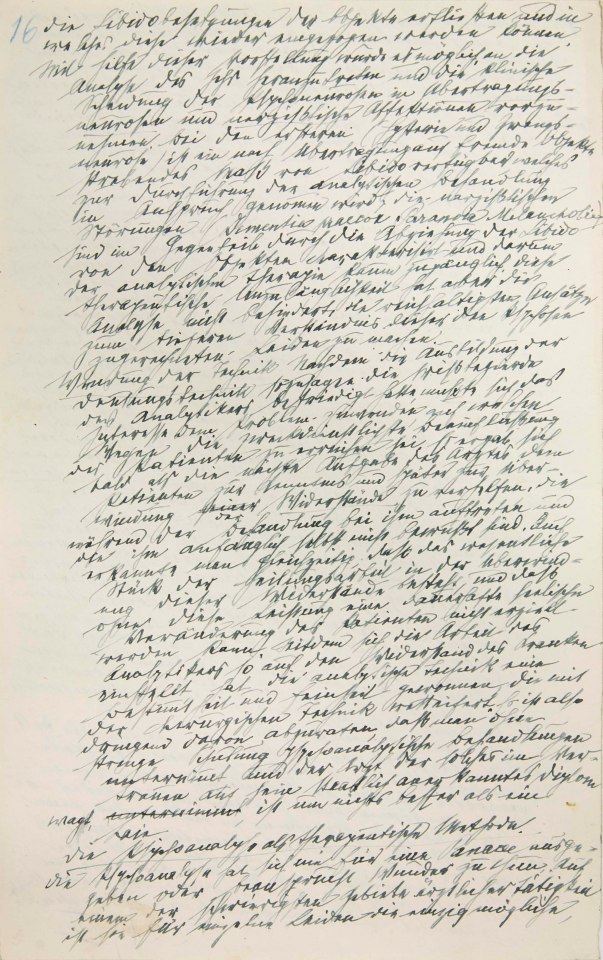 16 die Libidobesetzungen der Objekte erfließen und in
welches diese wieder eingezogen werden können.
Mit Hilfe dieser Vorstellung wurde es möglich an die
Analyse des Ichs heranzutreten und die klinische
Scheidung der Psychoneurosen in Übertragungs-
neurosen und narzißtische Affektionen vorzu-
nehmen. Bei den ersteren (Hysterie und Zwangs-
neurose) ist ein nach Übertragung auf fremde Objekte
strebendes Maß von Libido verfügbar welches
zur Durchführung der analytischen Behandlung
in Anspruch genommen wird; die narzißtischen
Störungen (Dementia praecox Paranoia Melancholie)
sind im Gegenteil durch die Abziehung der Libido
von den Objekten charakterisiert und darum
der analytischen Therapie kaum zugänglich diese
therapeutische Unzulänglichkeit hat aber die
Analyse nicht behindert, die reichhaltigsten Ansätze
zum tieferen Verständnis dieser den Psychosen
zugerechneten Leiden zu machen.
Wendung der Technik. Nachdem die Ausbildung der
Deutungstechnik sozusagen die Wißbegierde
des Analytikers befriedigt hatte mußte sich das
Interesse dem Problem zuwenden auf welchen
Wegen die zweckdienlichste Beeinflussung
des Patienten zu erreichen sei. Es ergab sich
bald als die nächste Aufgabe des Arztes dem
Patienten zur Kenntnis und später zur Über-
windung der Widerstände zu verhelfen, die
während der Behandlung bei ihm auftreten und
die ihm anfänglich selbst nicht bewußt sind. Auch
erkannte man gleichzeitig daß das wesentliche
Stück der Heilungsarbeit in der Überwind-
ung dieser Widerstände besteht und daß
ohne diese Leistung eine dauerhafte seelische
Veränderung des Patienten nicht erzielt
werden kann. Seitdem sich die Arbeit des
Analytikers so auf den Widerstand des Kranken
einstellt hat die analytische Technik eine
Bestimmtheit und Feinheit gewonnen die mit
der chirurgischen Technik wetteifert. Es ist also
dringend davon abzuraten, daß man ohne
strenge Schulung psychoanalytische Behandlungen
unternimmt und der Arzt der solches im Ver-
trauen auf sein staatlich anerkanntes Diplom
wagt, unternimmt ist um nichts besser als ein
Laie.
Die Psychoanalyse als therapeutische Methode.
Die Psychoanalyse hat sich nie für eine Panacee ausge-
geben oder beansprucht Wunder zu tun. Auf
einem der schwierigsten Gebiete ärztlicher Tätigkeit
ist sie für einzelne Leiden die einzig mögliche,